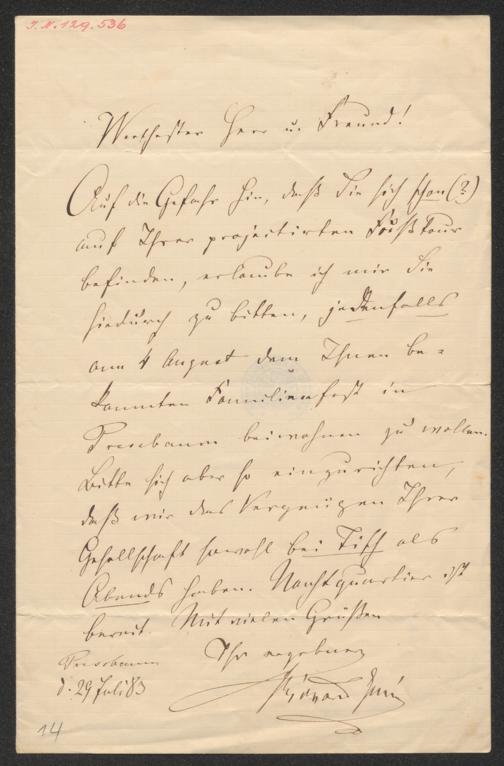 I. N. 129.536
Werthester Herr u. Freund!
Auf die Gefahr hin, daß Sie sich schon (?)
auf Ihrer projectirten Fußtour
befinden, erlaube ich mir Sie
hiedurch zu bitten, jedenfalls
am 4 August dem Ihnen be=
kannten Familienfest in
Pressbaum beiwohnen zu wollen.
Bitte sich aber so einzurichten,
daß wir das Vergnügen Ihrer
Gesellschaft sowohl bei Tisch als
Abends haben. Nachtquartier ist
bereit. Mit vielen Grüßen
Ihr ergebener
Pressbaum
d. 29 Juli 83
14